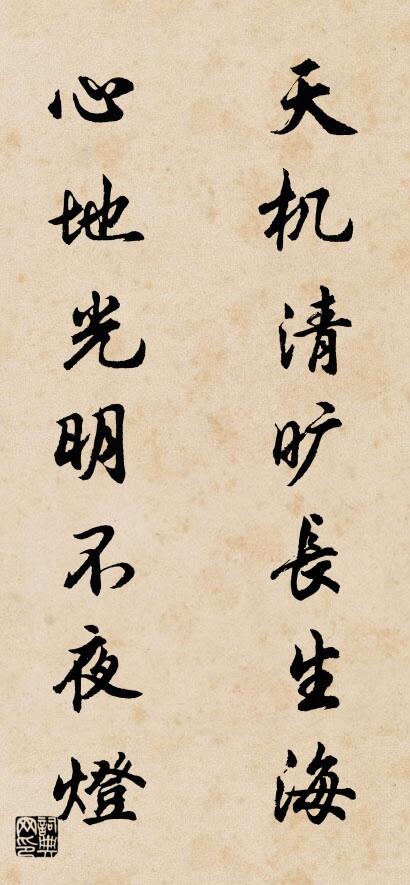 天机清旷長生海
心地光明不夜燈
詞典网印